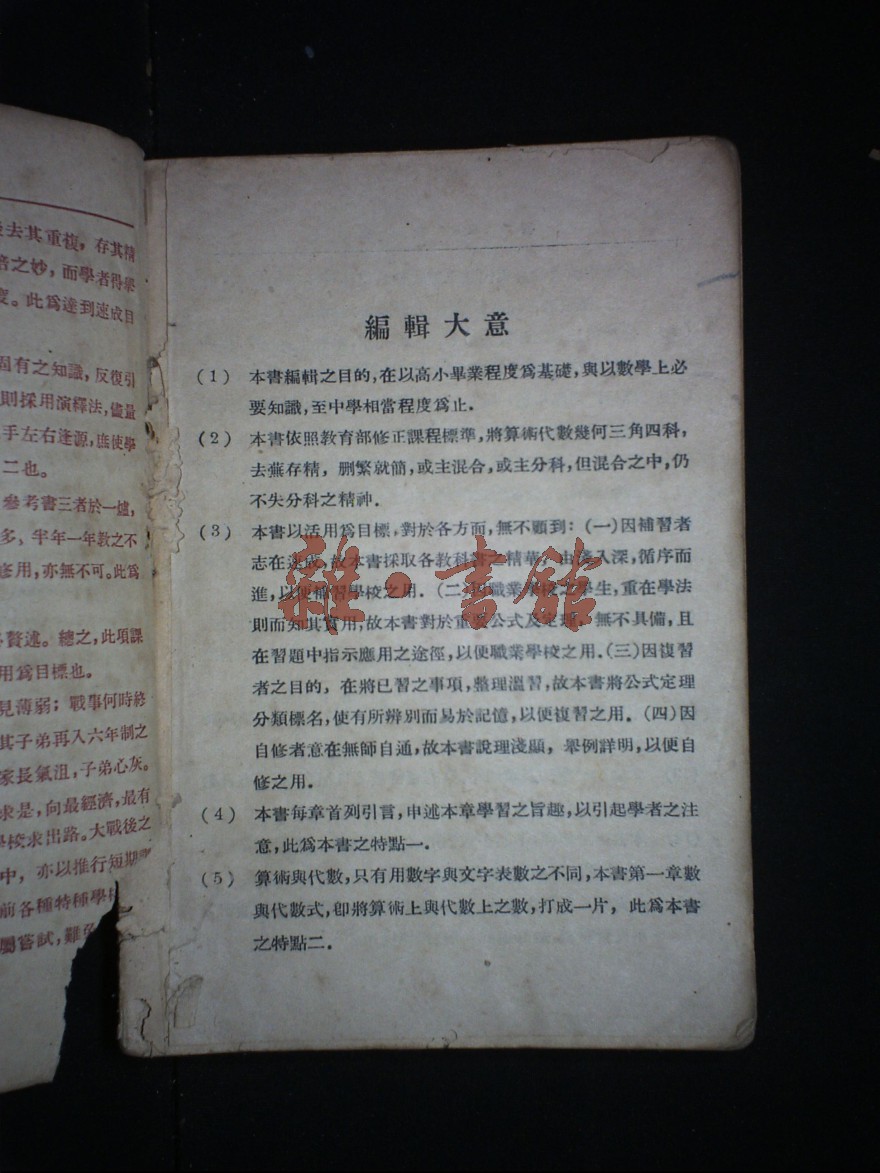 去其重複，存其精
之妙，而學者得
。此爲達到速成目
固有之知識，反復引
則採用演繹法，儘量
手左右逢源，庶使學
二也。
參考書三者於一爐，
多，半年一年教之不
修用，亦無不可。此爲
贅述。總之，此項課
用爲目標也。
見薄弱；戰事何時終
其子弟再入六年制之
家長氣沮，子弟心灰。
求是，向最經濟，最有
學校求出路。大戰後之
中，亦以推行短期
前各種特種學
屬嘗試，難
編輯大意
(1) 本書編輯之目的，在以高小畢業程度爲基礎，與以數學上必
要知識，至中學相當程度爲止．
(2) 本書依照教育部修正課程標準，將算術代數幾何三角四科，
去蕪存精，刪繁就簡，或主混合，或主分科，但混合之中，仍
不失分科之精神．
(3) 本書以活用爲目標，對於各方面，無不顧到：(一)因補習者
志在速成，故本書採取各教科書之精華，由淺入深，循序而
進，以便補習學校之用．(二)因職業學校之學生，重在學法
則而知其實用，故本書對於重要公式及定理，無不具備，且
在習題中指示應用之途徑，以便職業學校之用．(三)因復習
者之目的，在將已習之事項，整理溫習，故本書將公式定理
分類標名，使有所辨別而易於記憶，以便複習之用．(四)因
自修者意在無師自通，故本書說理淺顯，舉例詳明，以便自
修之用．
(4) 本書每章首列引言，申述本章學習之旨趣，以引起學者之注
意，此爲本書之特點一．
(5) 算術與代數，只有用數字與文字表數之不同，本書第一章數
與代數式，卽將算術上與代數上之數，打成一片，此爲本書
之特點二．
雜·書館